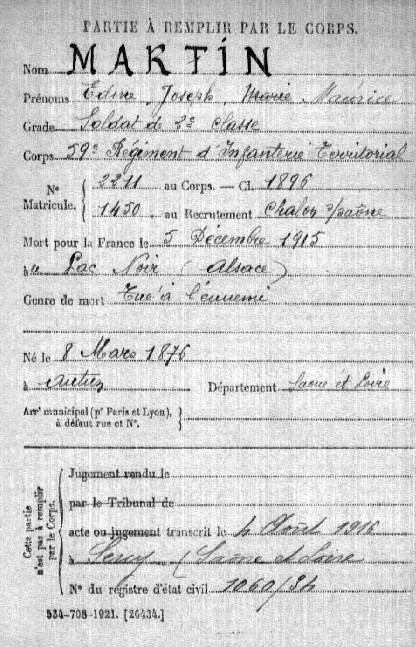 PARTIE À REMPLIR PAR LE CORPS.
Nom MARTIN
Prénoms Edme Joseph Marie Maurice
Grade Soldat de 2e Classe
Corps 59e Régiment d'Infanterie Territorial
N° Matricule. 2211 au Corps. — Cl. 1896
1450 au Recrutement Chalon s/Saône
Mort pour la France le 5 Décembre 1915
à u Lac Noir (Alsace)
Genre de mort Tué à l'ennemi
Né le 8 Mars 1876
à Autun Département Saône et Loire
Arrt municipal (pr Paris et Lyon),
à défaut rue et N°.
Cette partie n'est pas à remplir par le Corps.
Jugement rendu le
par le Tribunal de
acte ou jugement transcrit le 4 Août 1916
à (Saône et Loire
N° du registre d'état civil 1060/84
534-708-1921. [26434.]